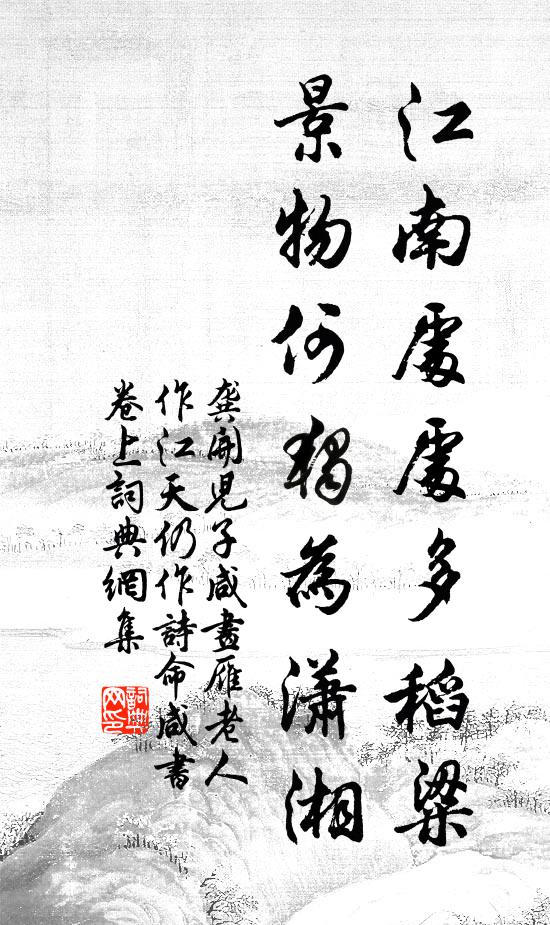 江南處處多稻粱
景物何獨為瀟湘
龔開兒子咸畫雁老人
作江天仍作詩命咸書
卷上詞典網集
詞典網印